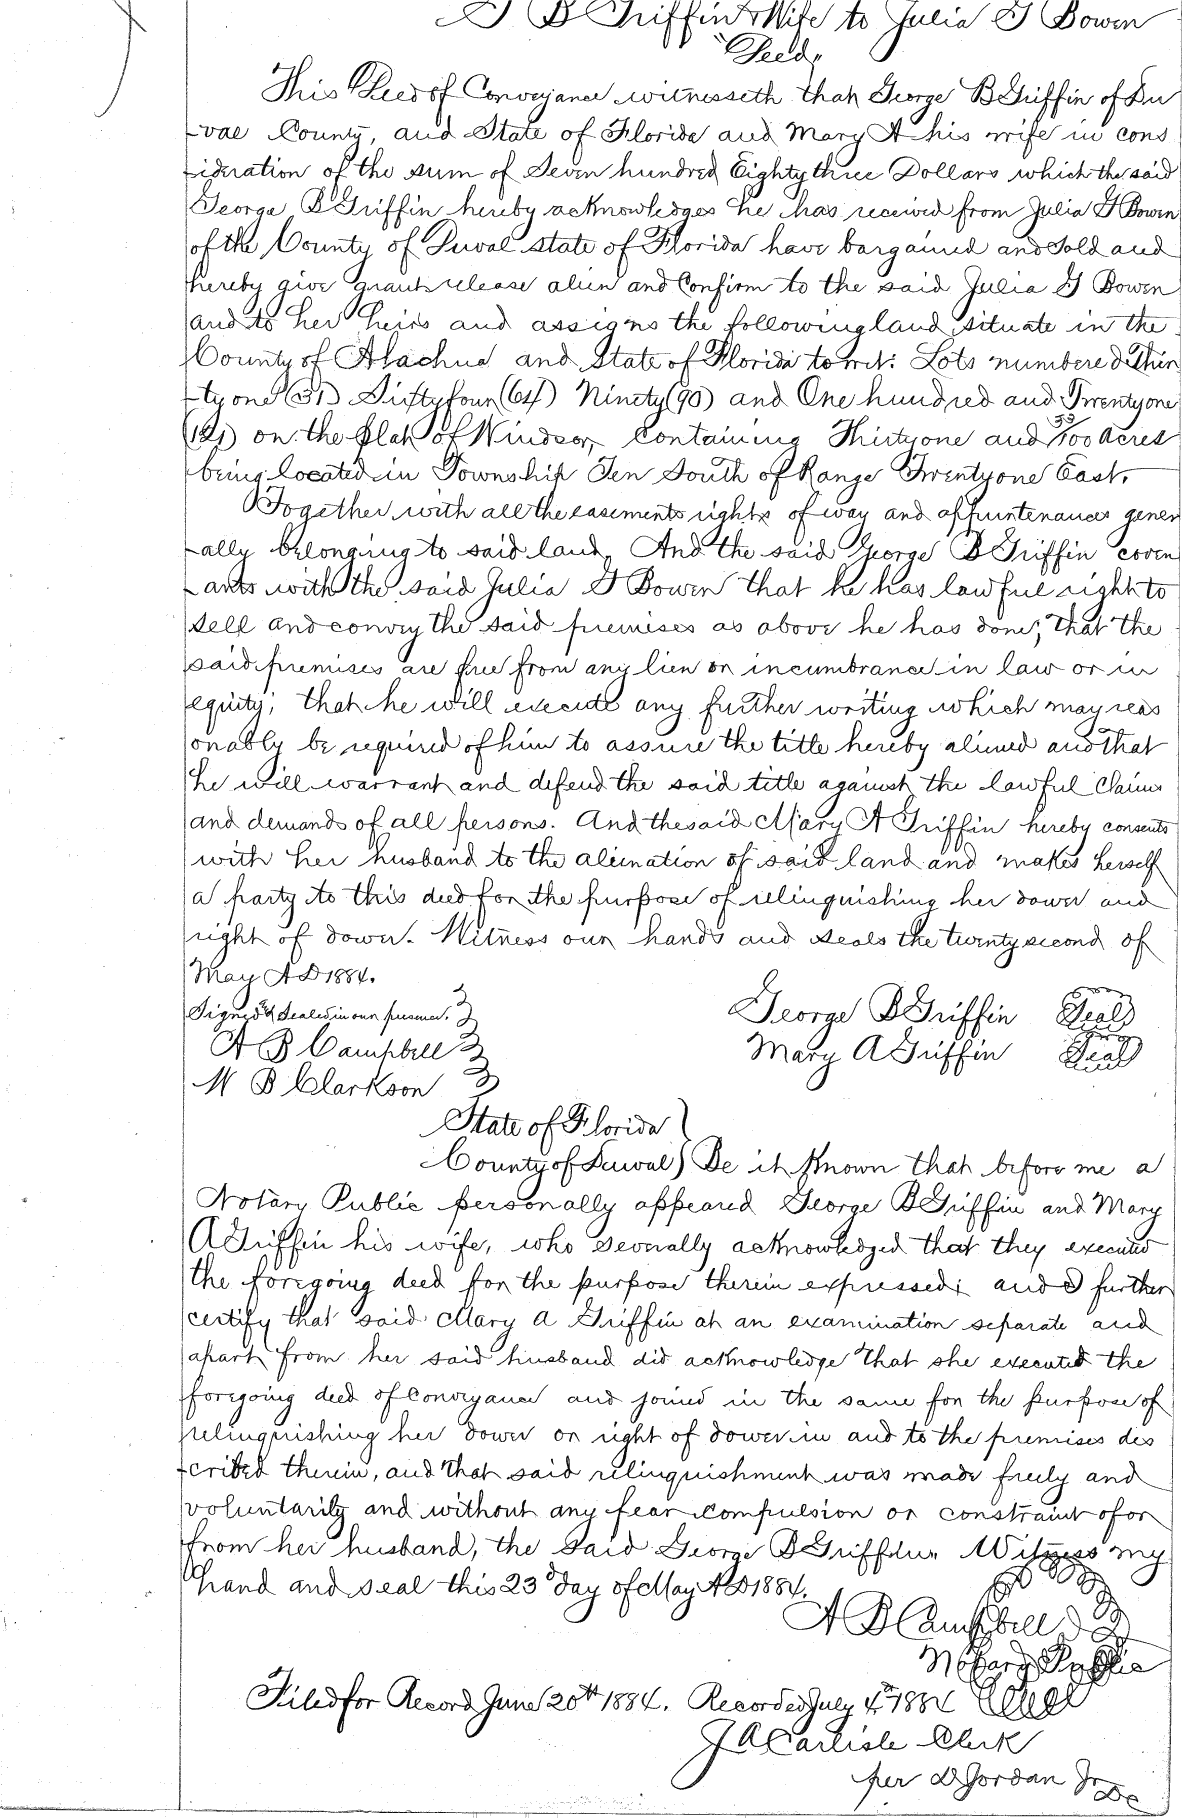 G B Griffin & Wife to Julia G Bowen
"Deed"
This Deed of Conveyance witnesseth that George B Griffin of Du
-val County, and State of Florida and Mary A his wife in cons
-ideration of the sum of Seven hundred Eighty three Dollars which the said
George B Griffin hereby acknowledges he has received from Julia G Bowen
of the County of Duval State of Florida have bargained and Sold and
hereby give grant release alien and Confirm to the said Julia G Bowen
and to her heirs and assigns the following land situate in the
County of Alachua and State of Florida to wit: Lots numbered Thir
-ty one (31) Sixty four (64) Ninety (90) and One hundred and Twenty one
(121) on the plat of Windsor, Containing Thirty one and 33/100 Acres
being located in Township Ten South of Range Twenty one East.
Together with all the easements rights of way and appurtenances gener
-ally belonging to said land, And the said George B Griffin coven
-ants with the said Julia G Bowen that he has lawful right to
sell and convey the said premises as above he has done; that the
said premises are free from any lien or incumbrance in law or in
equity; that he will execute any further writing which may reas
onably be required of him to assure the title hereby aliened and that
he will warrant and defend the said title against the lawful Claims
and demands of all persons. And the said Mary A Griffin hereby consents
with her husband to the alienation of said land and makes herself
a party to this deed for the purpose of relinquishing her dower and
right of dower. Witness our hands and seals the twenty second of
May A D 1884.
Signed & Sealed in our presence.
George B Griffin Seal
A B Campbell
Mary A Griffin Seal
W B Clarkson
State of Florida
County of Duval) Be it Known that before me a
Notary Public personally appeared George B Griffin and Mary
A Griffin his wife, who severally acknowledged that they executed
the foregoing deed for the purpose therein expressed; and I further
certify that said Mary A Griffin at an examination separate and
apart from her said husband did acknowledge that she executed the
foregoing deed of Conveyance and joined in the same for the purpose of
relinquishing her dower or right of dower in and to the premises des
-cribed therein, and that said relinquishment was made freely and
voluntarily and without any fear Compulsion or constraint of or
from her husband, the Said George B Griffin. Witness my
hand and seal this 23d day of May A D 1884.
A B Campbell
Notary Public
Filed for Record June 20th 1884. Recorded July 4th 1884 Seal
J A Carlisle Clerk
per D Jordan Jr DC